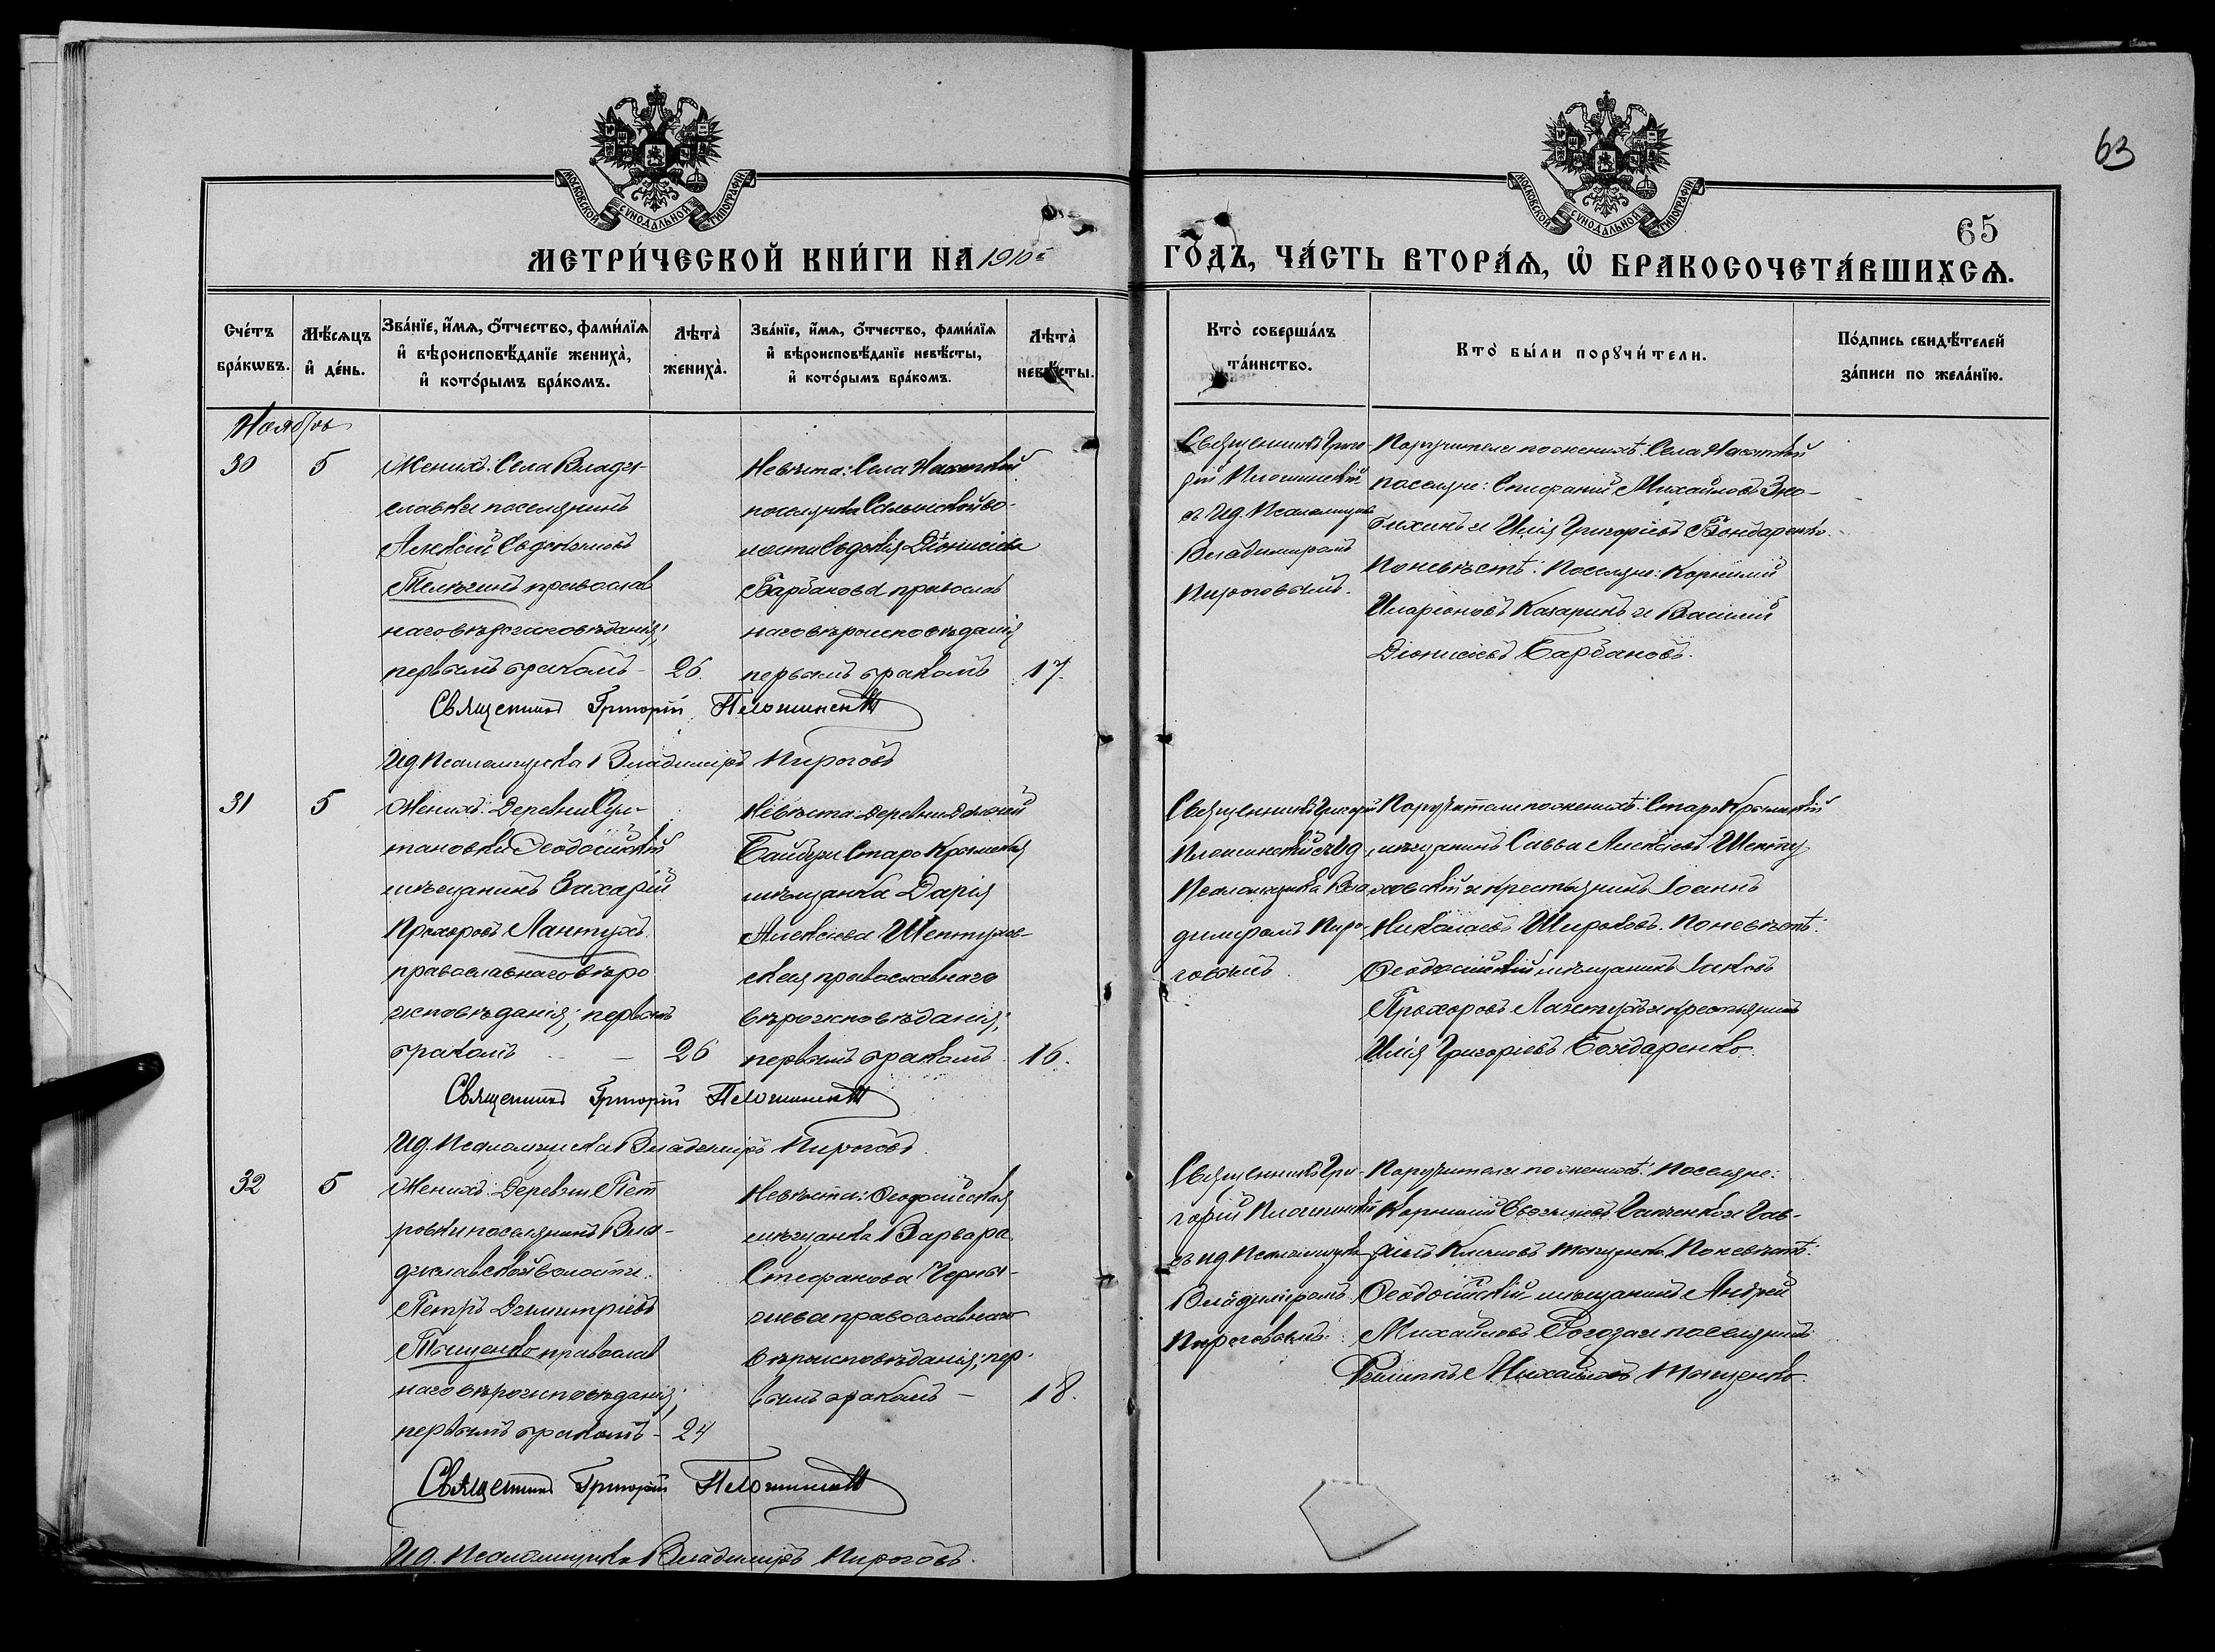 63
65
МОСКОВСКОЙ СѴНОДАЛЬНОЙ ТИПОГРАФІИ
МОСКОВСКОЙ СѴНОДАЛЬНОЙ ТИПОГРАФІИ
МЕТРИ́ЧЕСКОЙ КНИ́ГИ НА 1910й
ГО́ДЪ, ЧА́СТЬ ВТОРА́Ѧ, Ѡ҆ БРАКОСОЧЕТА́ВШИХСѦ.
Сче́тъ
бра́кѡвъ.
Мѣ́сѧцъ
и҆ де́нь.
Зва́нїе, и҆́мѧ, о҆́тчество, фами́лїѧ
и҆ вѣроисповѣ́данїе жениха̀,
и҆ кото́рымъ бра́комъ.
Лѣта̀
жениха̀.
Зва́нїе, и҆́мѧ, о҆́тчество, фами́лїѧ
и҆ вѣроисповѣ́данїе невѣ́сты,
и҆ кото́рымъ бра́комъ.
Лѣта̀
невѣ́сты.
Кто̀ соверша́лъ
та́инство.
Кто̀ бы́ли порꙋчи́тели.
По́дпись свидѣ́телей
за́писи по жела́нїю.
Ноябрь
30
5
Женихъ: Села Влади-
славки поселянинъ
Алексій Евдокимовъ
православ
наго вѣроисповѣданія;
первымъ бракомъ –
26.
Невѣста: Села
поселянка во-
лости Евдокія Діонисіева
Барбанова православ
наго вѣроисповѣданія
первымъ бракомъ
17.
Священникъ Григо-
рій
съ ид. Псаломщика
Владимиромъ
Пироговымъ.
Поручители по женихѣ: Села
поселяне: Михайловъ
и Илія Григоріевъ Бондаренко.
По невѣстѣ: Поселяне: Корнилий
Иларіоновъ Казаринъ и Василий
Діонисіевъ Барбановъ.
Священникъ Григорій
Ид. Псаломщика Владимиръ Пироговъ
31
5
Женихъ: Деревни Сул-
тановки Ѳеодосійскій
мѣщанинъ Захарій
Прохоровъ Лантухъ
православнаго вѣро
исповѣданія; первымъ
бракомъ –
26
Невѣста: Деревни
Байбуги Старо Крымская
мѣщанка Дарія
Алексіева Шептухов-
ская православнаго
вѣроисповѣданія;
первымъ бракомъ
16.
Священникъ Григорій
съ ид
Псаломщика Вла
димиромъ Пиро-
говымъ
Поручители по женихѣ: Старо Крымскій
мѣщанинъ Савва Алексіевъ Шепту
ховскій и крестьянинъ Іоаннъ
Николаевъ Широковъ. По невѣстѣ:
Ѳеодосійскій мѣщанинъ Іаковъ
Прохоровъ Лантухъ и крестьянинъ
Илія Григоріевъ Бондаренко.
Священникъ Григорій
Ид. Псаломщика Владимиръ Пироговъ.
32
5
Женихъ: Деревни Пет
ровки поселянинъ Вла-
диславской волости
Петръ Димитріевъ
Тыщенко православ
наго вѣроисповѣданія;
первымъ бракомъ –
24
Невѣста: Ѳеодосійская
мѣщанка Варвара
Стефанова Черны-
шева православнаго
вѣроисповѣданія; пер-
вымъ бракомъ –
18.
Священникъ Гри-
горій
съ ид Псаломщика
Владимиромъ
Пироговымъ.
Поручители по женихѣ: Поселяне:
Корнилій и Гав-
По невѣстѣ:
Ѳеодосійскій мѣщанинъ Андрей
Михайловъ Рогоза и поселянинъ
Филиппъ Михайловъ Тыщенко.
Священникъ Григорій
Ид. Псаломщика Владимиръ Пироговъ.